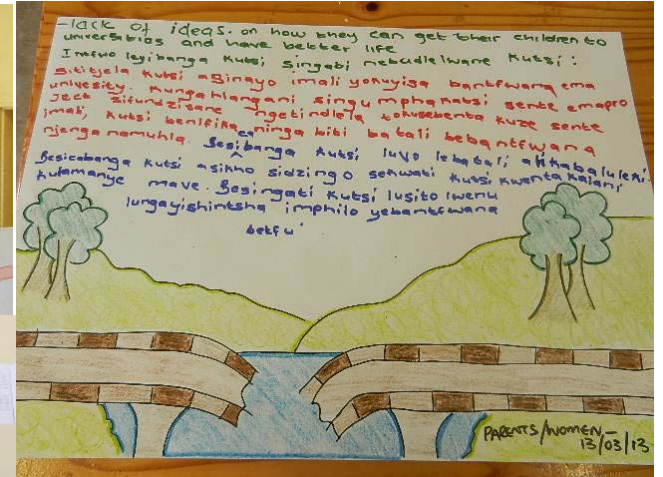 -lack of ideas. on how they can get their children to
universities and have better life
Intfwo leyibanga kutsi singabi nebudlelwane kutsi:
Sititjela kutsi asinayo imali yekuyisa bantfwana ema
univesity. Kungahlangani singumphakatsi sente emapro
ject sifundzisane ngetindlela tekusebenta kuze sente
imali, kutsi benifika eninga biti batali bebantfwana
njenga namuhla. Besibanga kutsi luvo lebatali alikabaluleki
ca
Besicabanga kutsi asikho sidzingo sekwati kutsi kwentakalani
kulamanye mave. Besingati kutsi lusito lwenu
lungayishintsha imphilo yebantfwana
betfu
PARENTS/WOMEN-
13/03/13